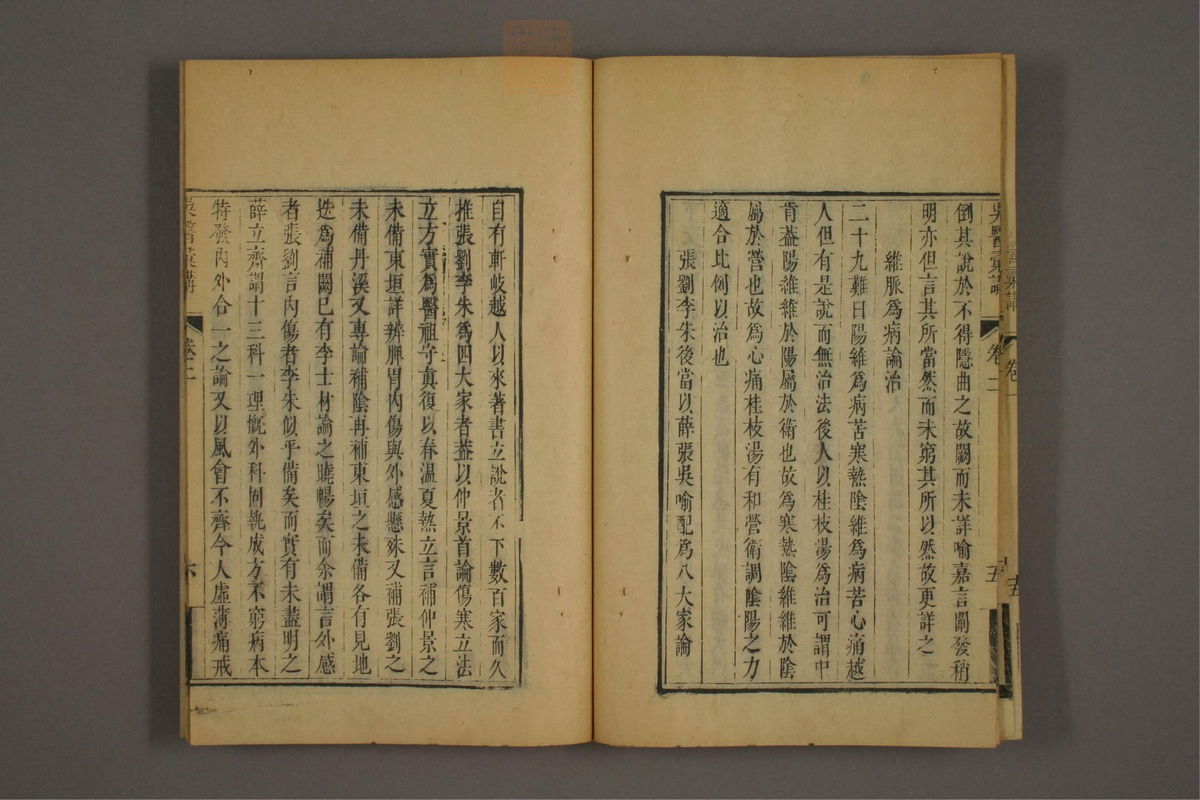 吳醫彙講
卷二
五
倒其說於不得隱曲之故闕而未詳喻嘉言闡發稍
明亦但言其所當然而未窮其所以然故更詳之
維脈為病論治
二十九難曰陽維為病苦寒熱陰維為病苦心痛越
人但有是說而無治法後人以桂枝湯為治可謂中
肯葢陽維維於陽屬於衛也故為寒熱陰維維於陰
屬於營也故為心痛桂枝湯有和營衛調陰陽之力
適合比例以治也
張劉李朱後當以薛張吳喻配為八大家論
自有軒岐越人以來著書立說者不下數百家而久
推張劉李朱為四大家者葢以仲景首論傷寒立法
立方實為醫祖守真復以春溫夏熱立言補仲景之
未備東垣詳辨脾胃內傷與外感懸殊又補張劉之
未備丹溪又專論補陰再補東垣之未備各有見地
迭為補闕已有李士材論之曉暢矣而余謂言外感
者張劉言內傷者李朱似乎備矣而實有未盡明之
薛立齋謂十三科一理慨外科固執成方不窮病本
特發內外合一之論又以風會不齊今人虛薄痛戒
吳醫彙講
卷二
六